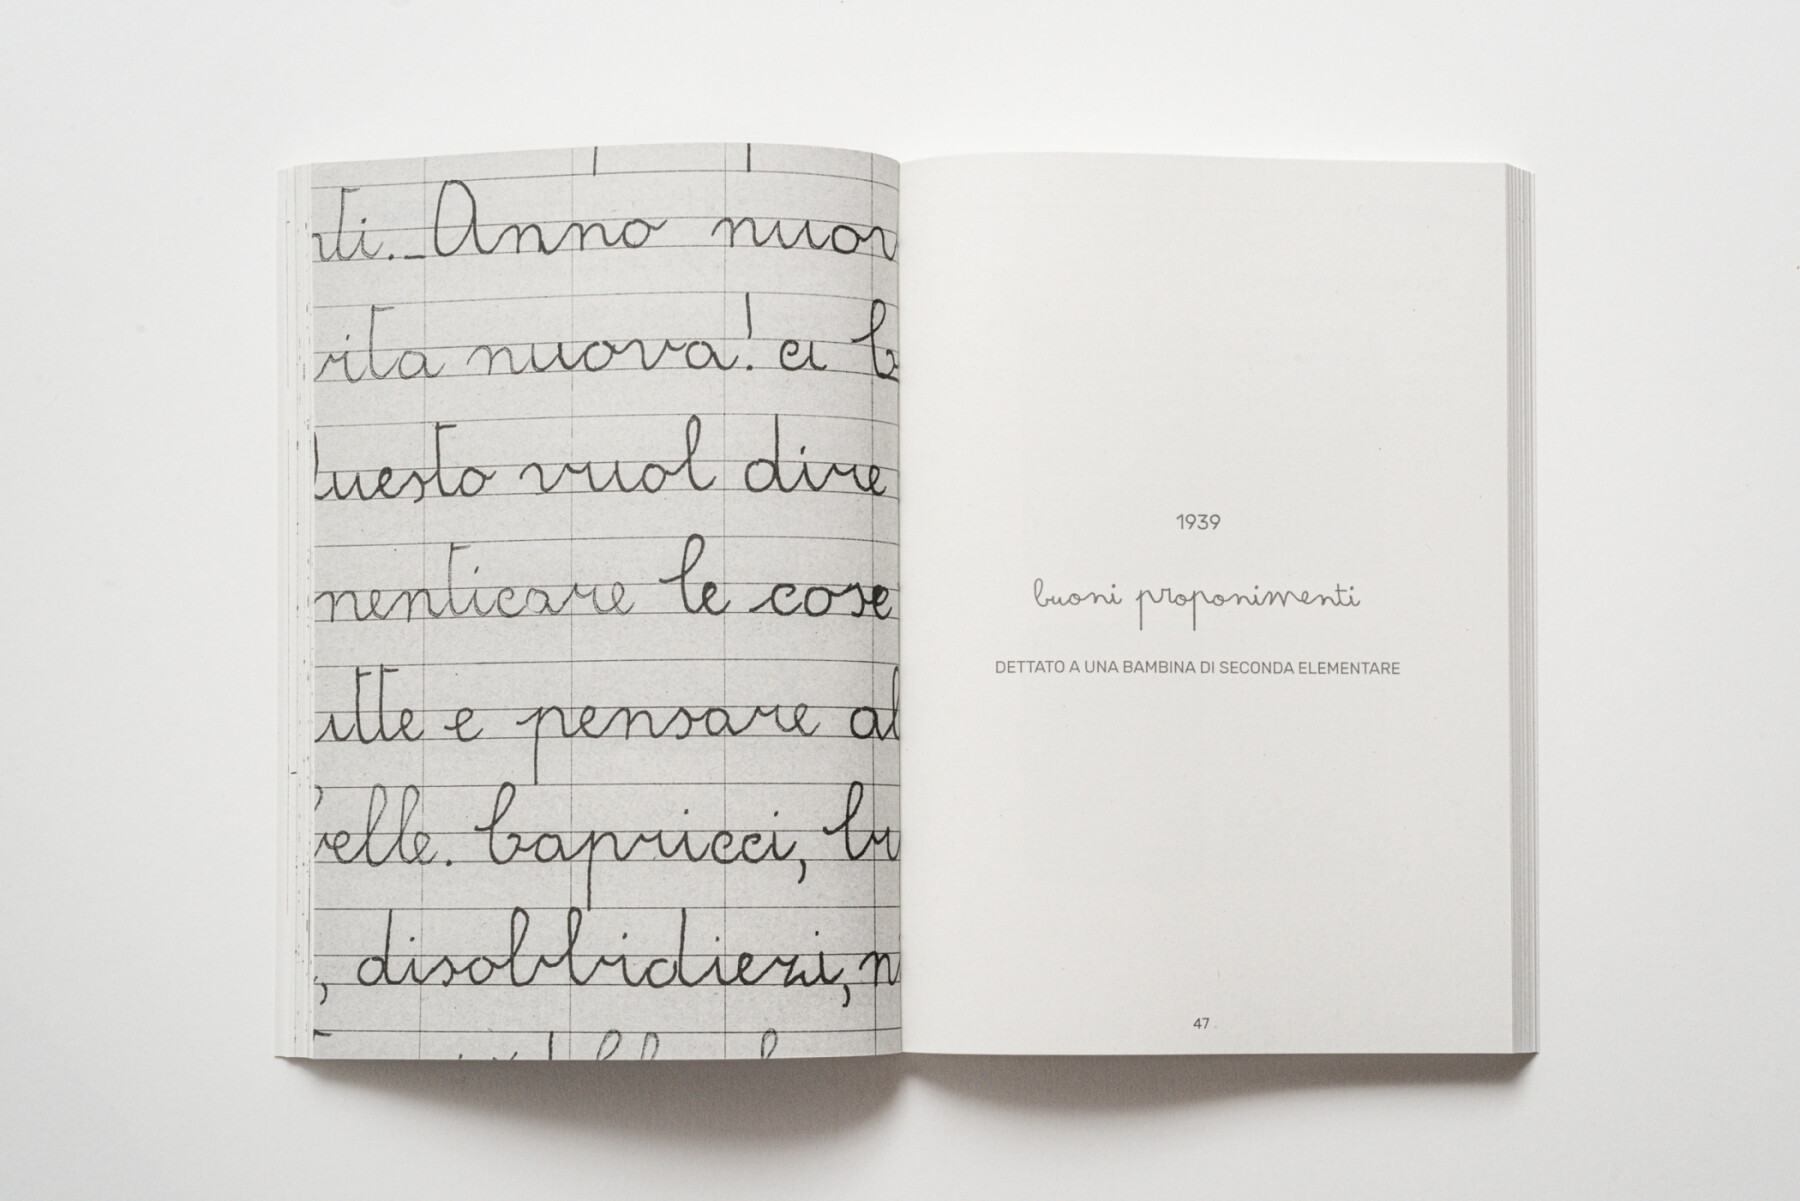 nti._Anno nuov
vita nuova! ci b
Questo vuol dire
menticare le cose
utte e pensare al
belle. Capricci, bu
, disobbidienzi, n
1939
buoni proponimenti
DETTATO A UNA BAMBINA DI SECONDA ELEMENTARE
47